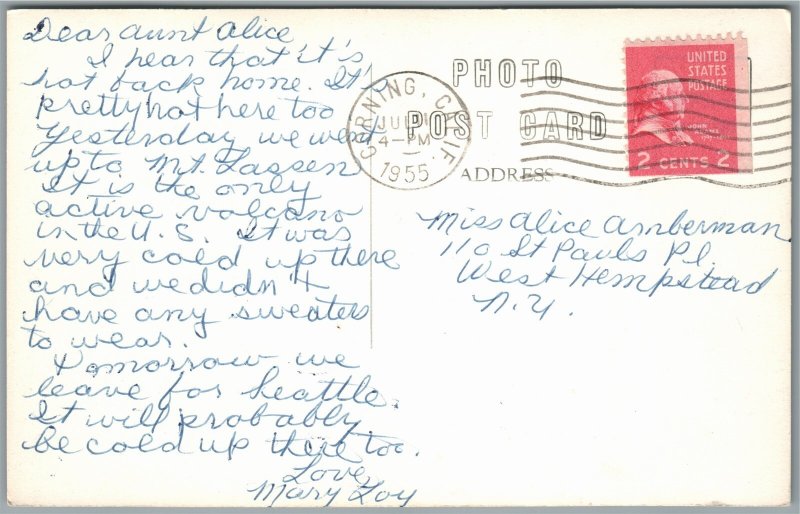 Dear Aunt Alice
I hear that it's
hot back home. It's
pretty hot here too
Yesterday we went
up to Mt. Lassen
It is the only
active volcano
in the U.S. It was
very cold up there
and we didn't
have any sweaters
to wear.
Tomorrow we
leave for Seattle.
It will probably
be cold up there too.
Love,
Mary Loy
PHOTO
POST CARD
ADDRESS
CORNING, CALIF
4-PM
1955
UNITED
STATES
POSTAGE
JOHN
ADAMS
2 CENTS 2
Miss Alice Amberman
110 St Pauls Pl.
West Hempstead
N.Y.